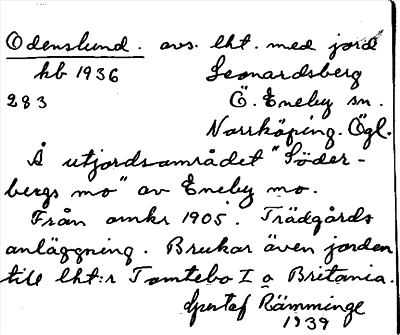 Odenslund. avs. lht. med jord
hb 1936 Leonardsberg
283 Ö. Eneby sn.
Norrköping. Ögl.
Å utjordsområdet "Söder-
bergs mo" av Eneby mo.
Från omkr 1905. Trädgårds
anläggning. Brukar även jorden
till lht:r Tomtebo I o Britania.
Gustaf Rämminge
1939